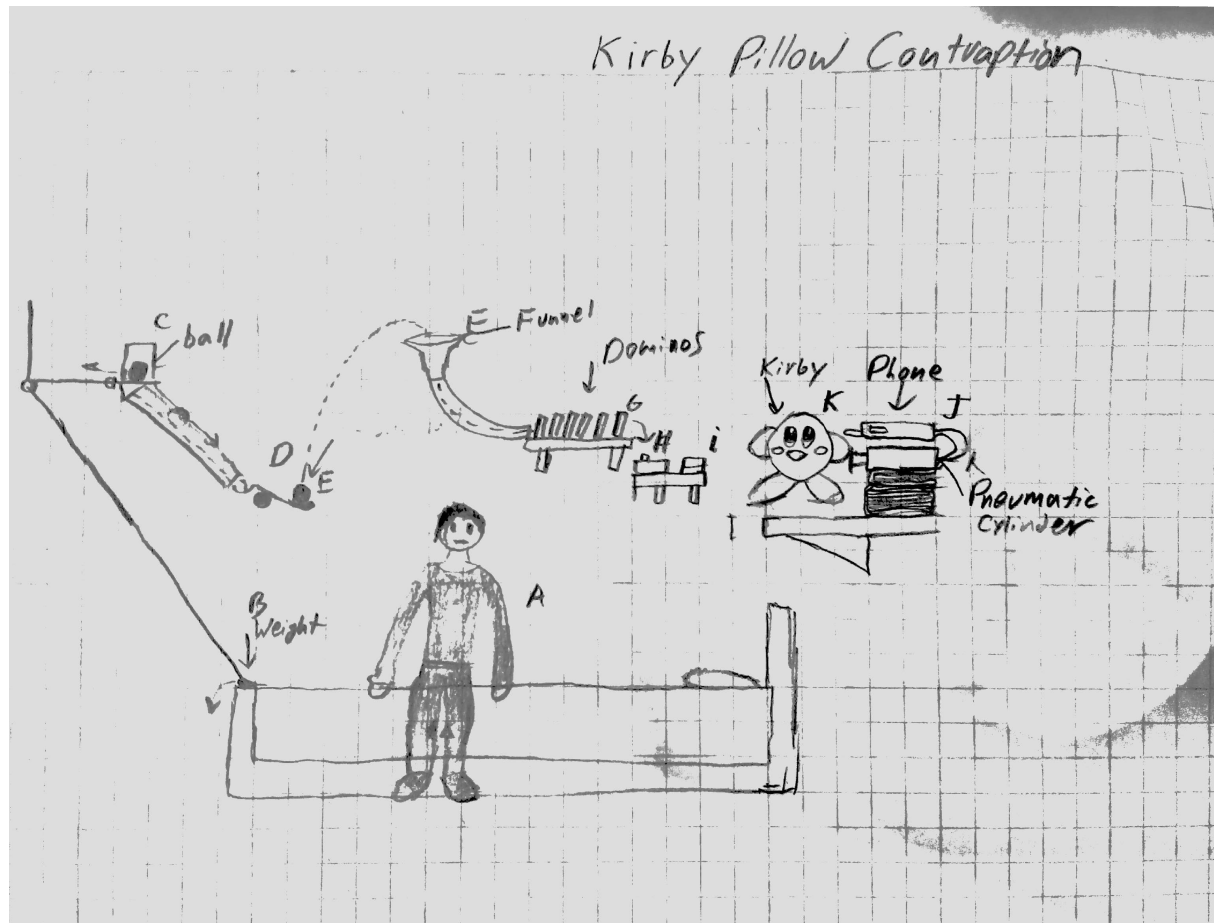 Kirby Pillow Contraption
C
ball
E
Funnel
Dominos
G
H
i
Kirby
K
Phone
J
D
E
I
Pneumatic
Cylinder
A
B
Weight